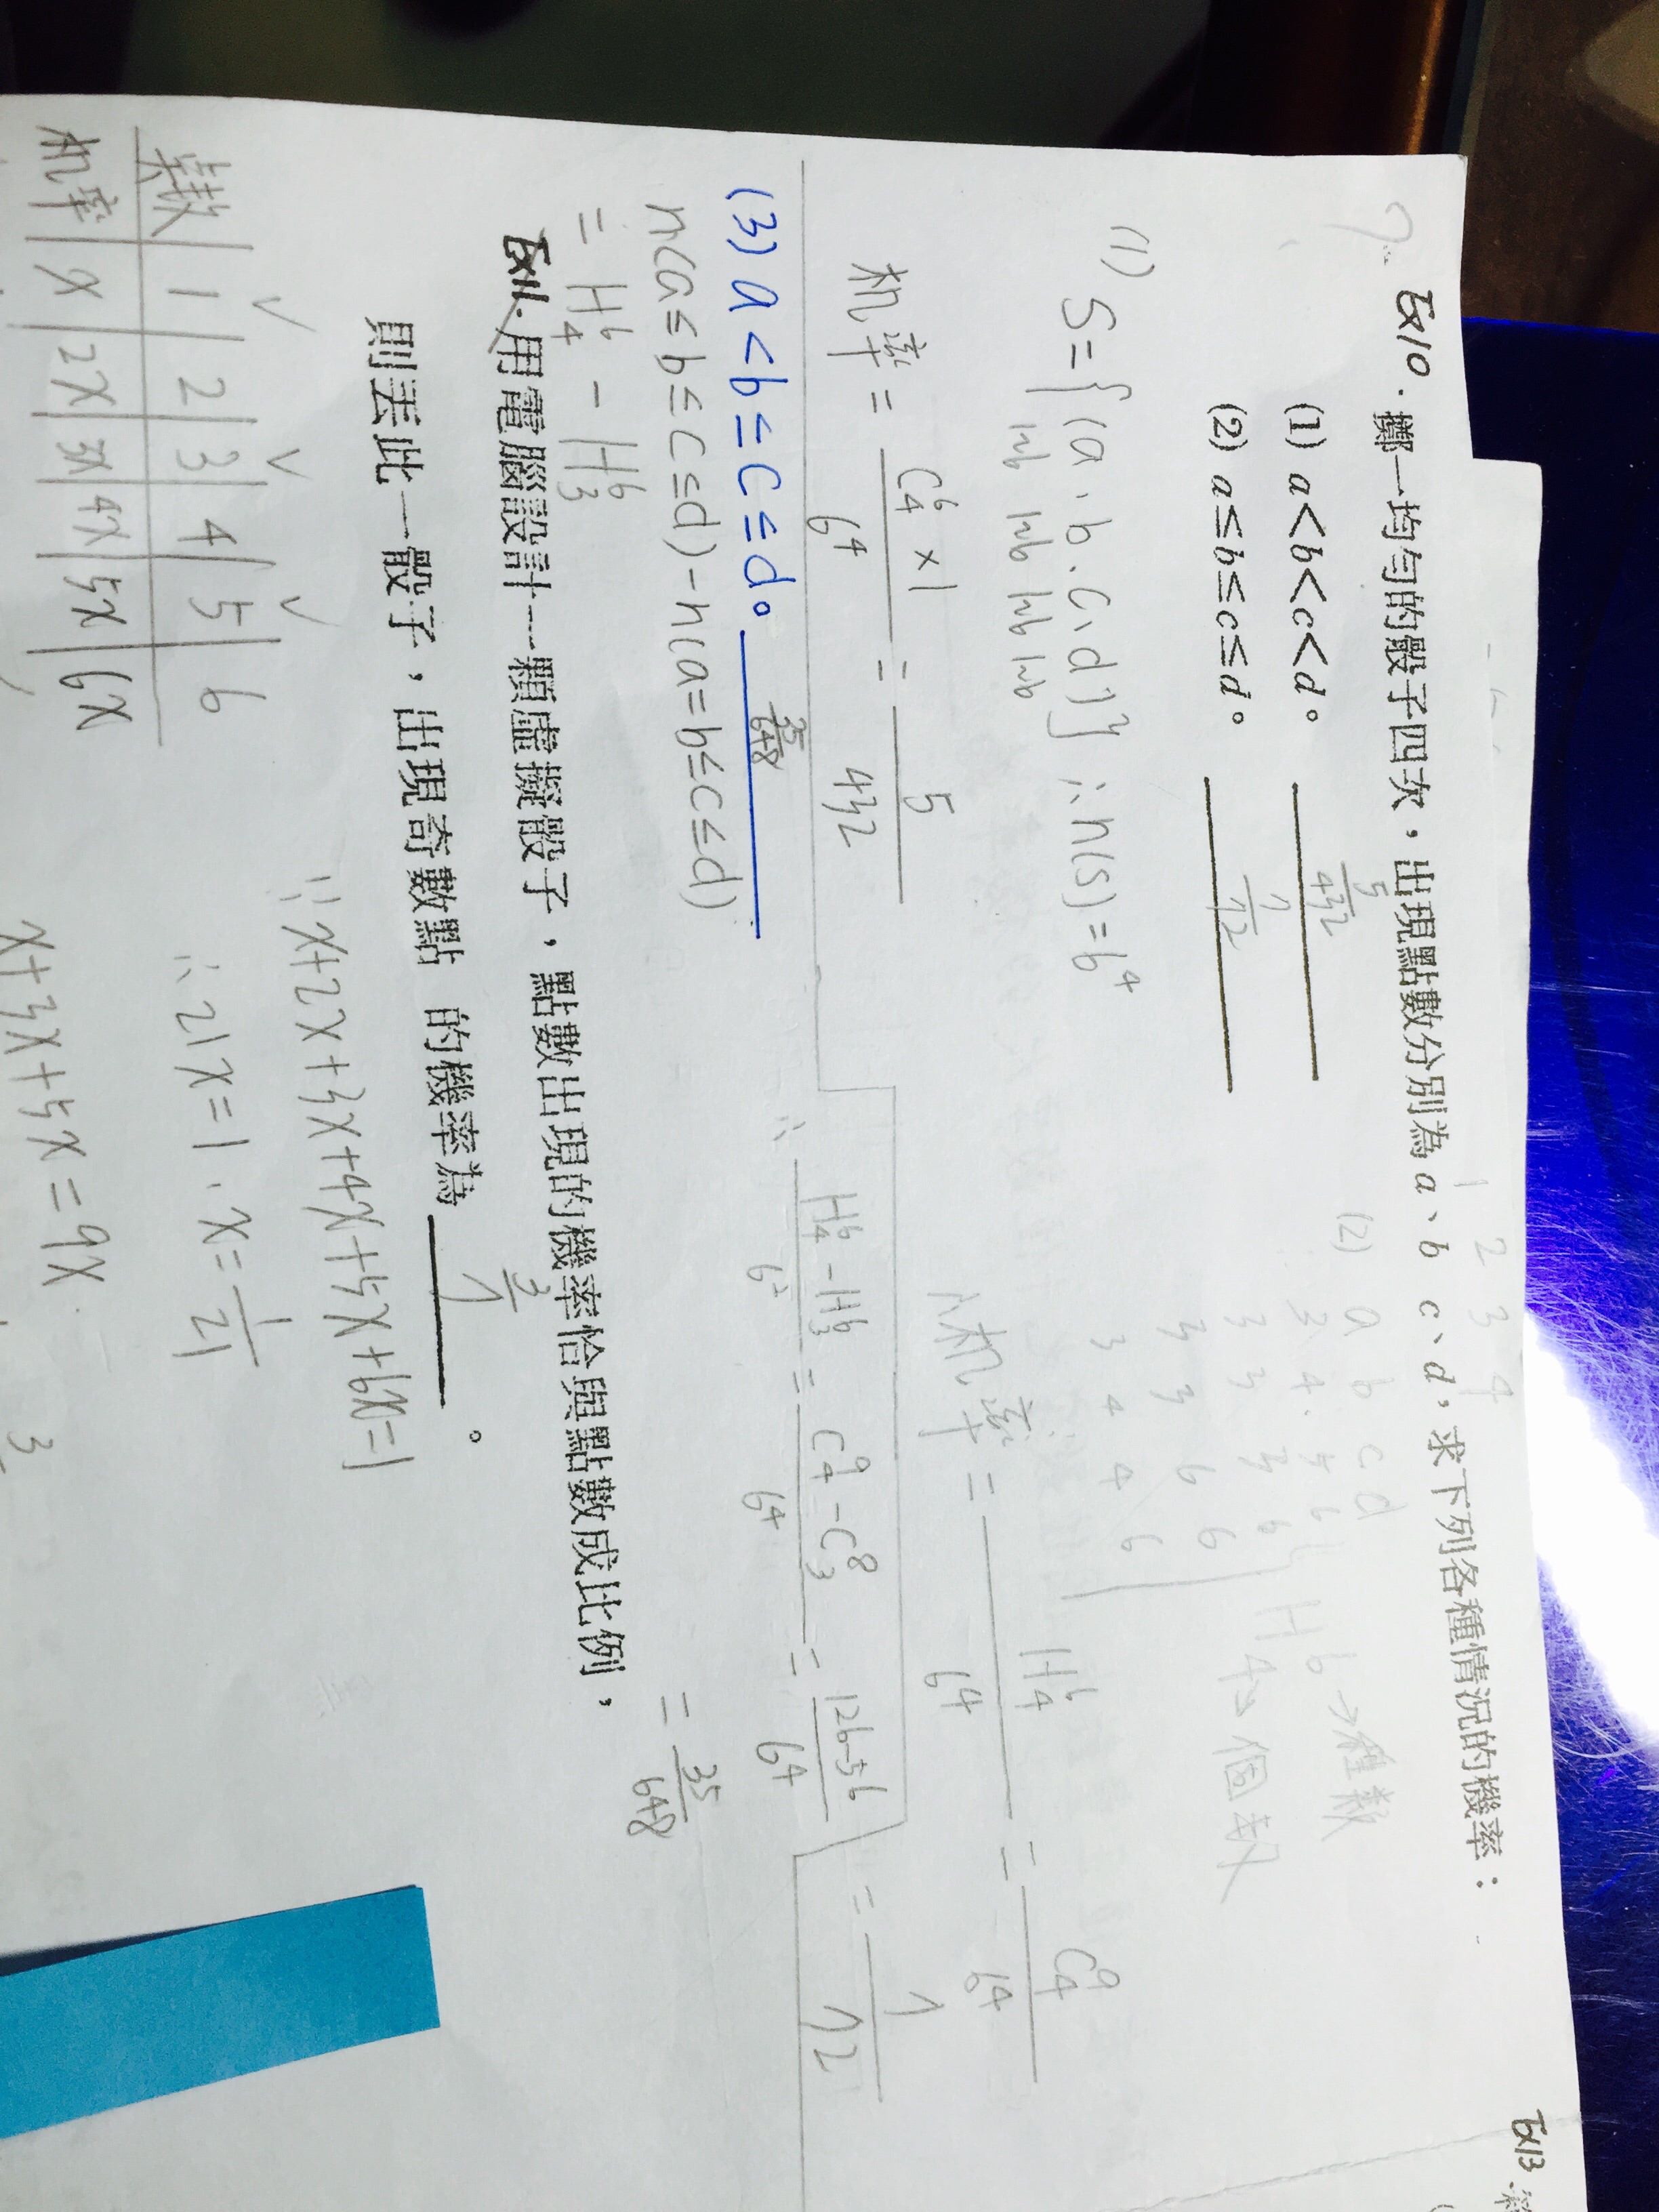 Ex10. 擲一均勻的骰子四次，出現點數分別為 a、b c、d，求下列各種情況的機率：
(1) a<b<c<d。 5/432
(2) a≤b≤c≤d。 7/72
(1)
S={(a.b.c.d)} ∴n(S)=6⁴
1~6 1~6 1~6 1~6
机率= C⁶₄×1/6⁴ = 5/432
1 2 3 4
(2) a b c d
3 4 5 6
3 3 3 6
3 3 6 6
3 4 4 6
H 6→種數
4→個數
∴机率= H⁶₄/6⁴ = C⁹₄/6⁴
= 7/72
(3) a<b≤c≤d。 35/648
n(a≤b≤c≤d)-n(a=b≤c≤d)
= H⁶₄ - H⁶₃
∴ H⁶₄-H⁶₃/6² = C⁹₄-C⁸₃/6⁴ = 126-56/6⁴
= 35/648
Ex11. 用電腦設計一顆虛擬骰子，點數出現的機率恰與點數成比例，
則丟此一骰子，出現奇數點 的機率為 3/7 。
點數 1 2 3 4 5 6
机率 x 2x 3x 4x 5x 6x
∵x+2x+3x+4x+5x+6x=1
∴21x=1. x=1/21
x+3x+5x=9x.
3
Ex13.